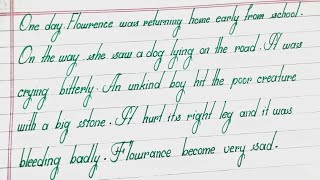 One day. Flowrence was returning home early from school.
On the way she saw a dog lying on the road. It was
crying bitterly. An unkind boy hit the poor creature
with a big stone. It hurt its right leg and it was
bleeding badly. Flowrance become very sad.